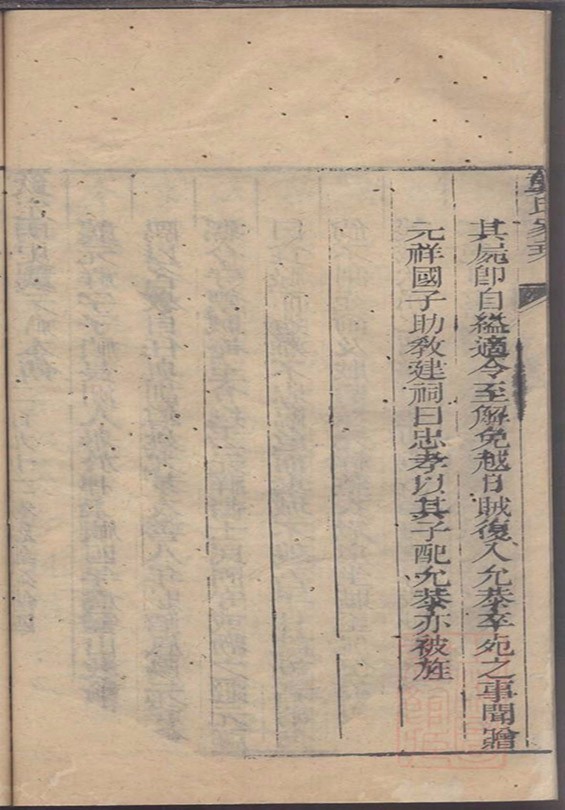 其屍卽自縊適令至解免越日賊復入允恭卒死之事聞贈
元祥國子助教建祠曰忠孝以其子配允恭亦被旌